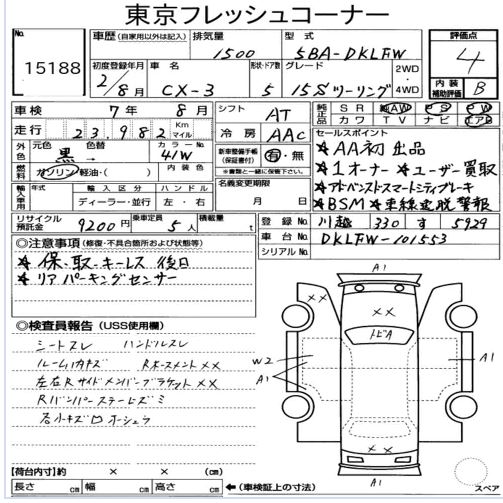 東京フレッシュコーナー
No. 15188
車歴 (自家用以外は記入) 排気量 1500 型式 5BA-DKLFW 評価点 4
初度登録年月 2/8月 車名 CX-3 形状・ドア数 5 グレード 15Sツーリング 2WD 4WD 内装補助評価 B
車検 7年 8月 シフト AT 純正品 SR AW PS PW
走行 23,982 Km マイル 冷房 AAC カワ TV ナビ エアB
外色 元色 黒 色替 カラーNo. 41W 内装色 新車整備手帳(保証書付) 有・無
燃料 ガソリン 軽油・( ) 名義変更期限 月 日
輸入車用 年式 年 輸入区分 ディーラー・並行 ハンドル 左・右
セールスポイント
★AA初出品
★1オーナー ★ユーザー買取
★アドバンストスマートシティブレーキ
★BSM ★車線逸脱警報
リサイクル預託金 9200円 乗車定員 5人 積載量 t 登録No. 川越 330 す 5929
車台No. DKLFW-101553
シリアルNo.
◎注意事項 (修復・不具合箇所および状態等)
★保・取・キーレス 後日
★リアパーキングセンサー
◎検査員報告 (USS使用欄)
シートスレ ハンドルスレ
ルーム内キズ Rホースメント××
左右Rサイドメンバーブラケット××
Rバンパーステーヒズミ
A1
××
トビA
W2
A1
A1
××
A1
【荷台内寸】約 × × (cm)
長さ cm 幅 cm 高さ cm ←(車検証上の寸法)
スペア